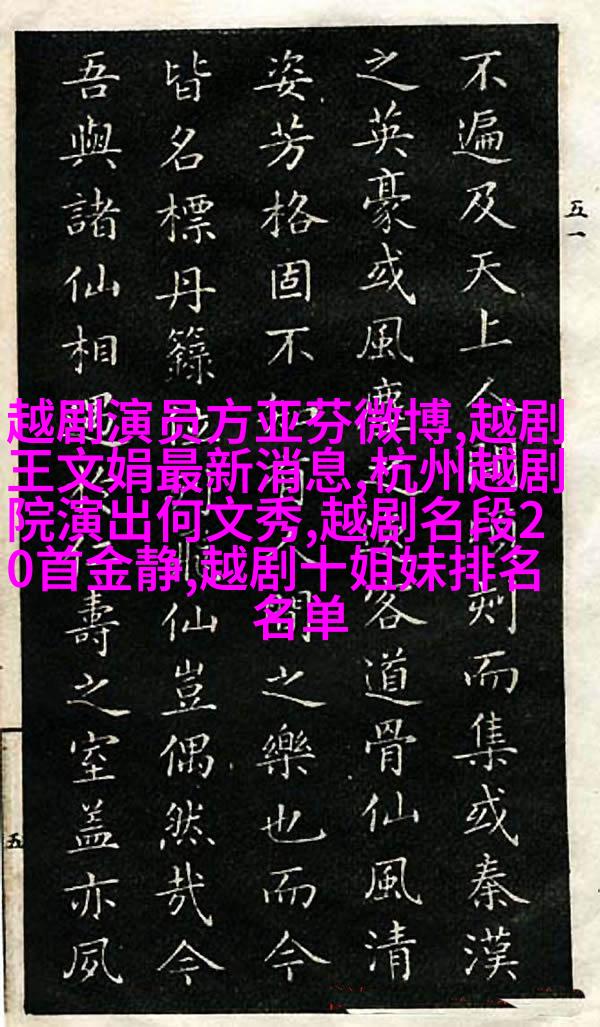 越剧演员方亚芬微博,越剧
王文娟最新消息,杭州越剧
院演出何文秀,越剧名段2
0首金静,越剧十姐妹排名
名单
五一
不遍及天上人刻而集或秦漢
之英豪或風塵客道骨仙風清
姿芳格固不知有間之樂也而今
皆名標丹籙仙豈偶然哉今
吾與諸仙相遇壽之室蓋亦夙
五